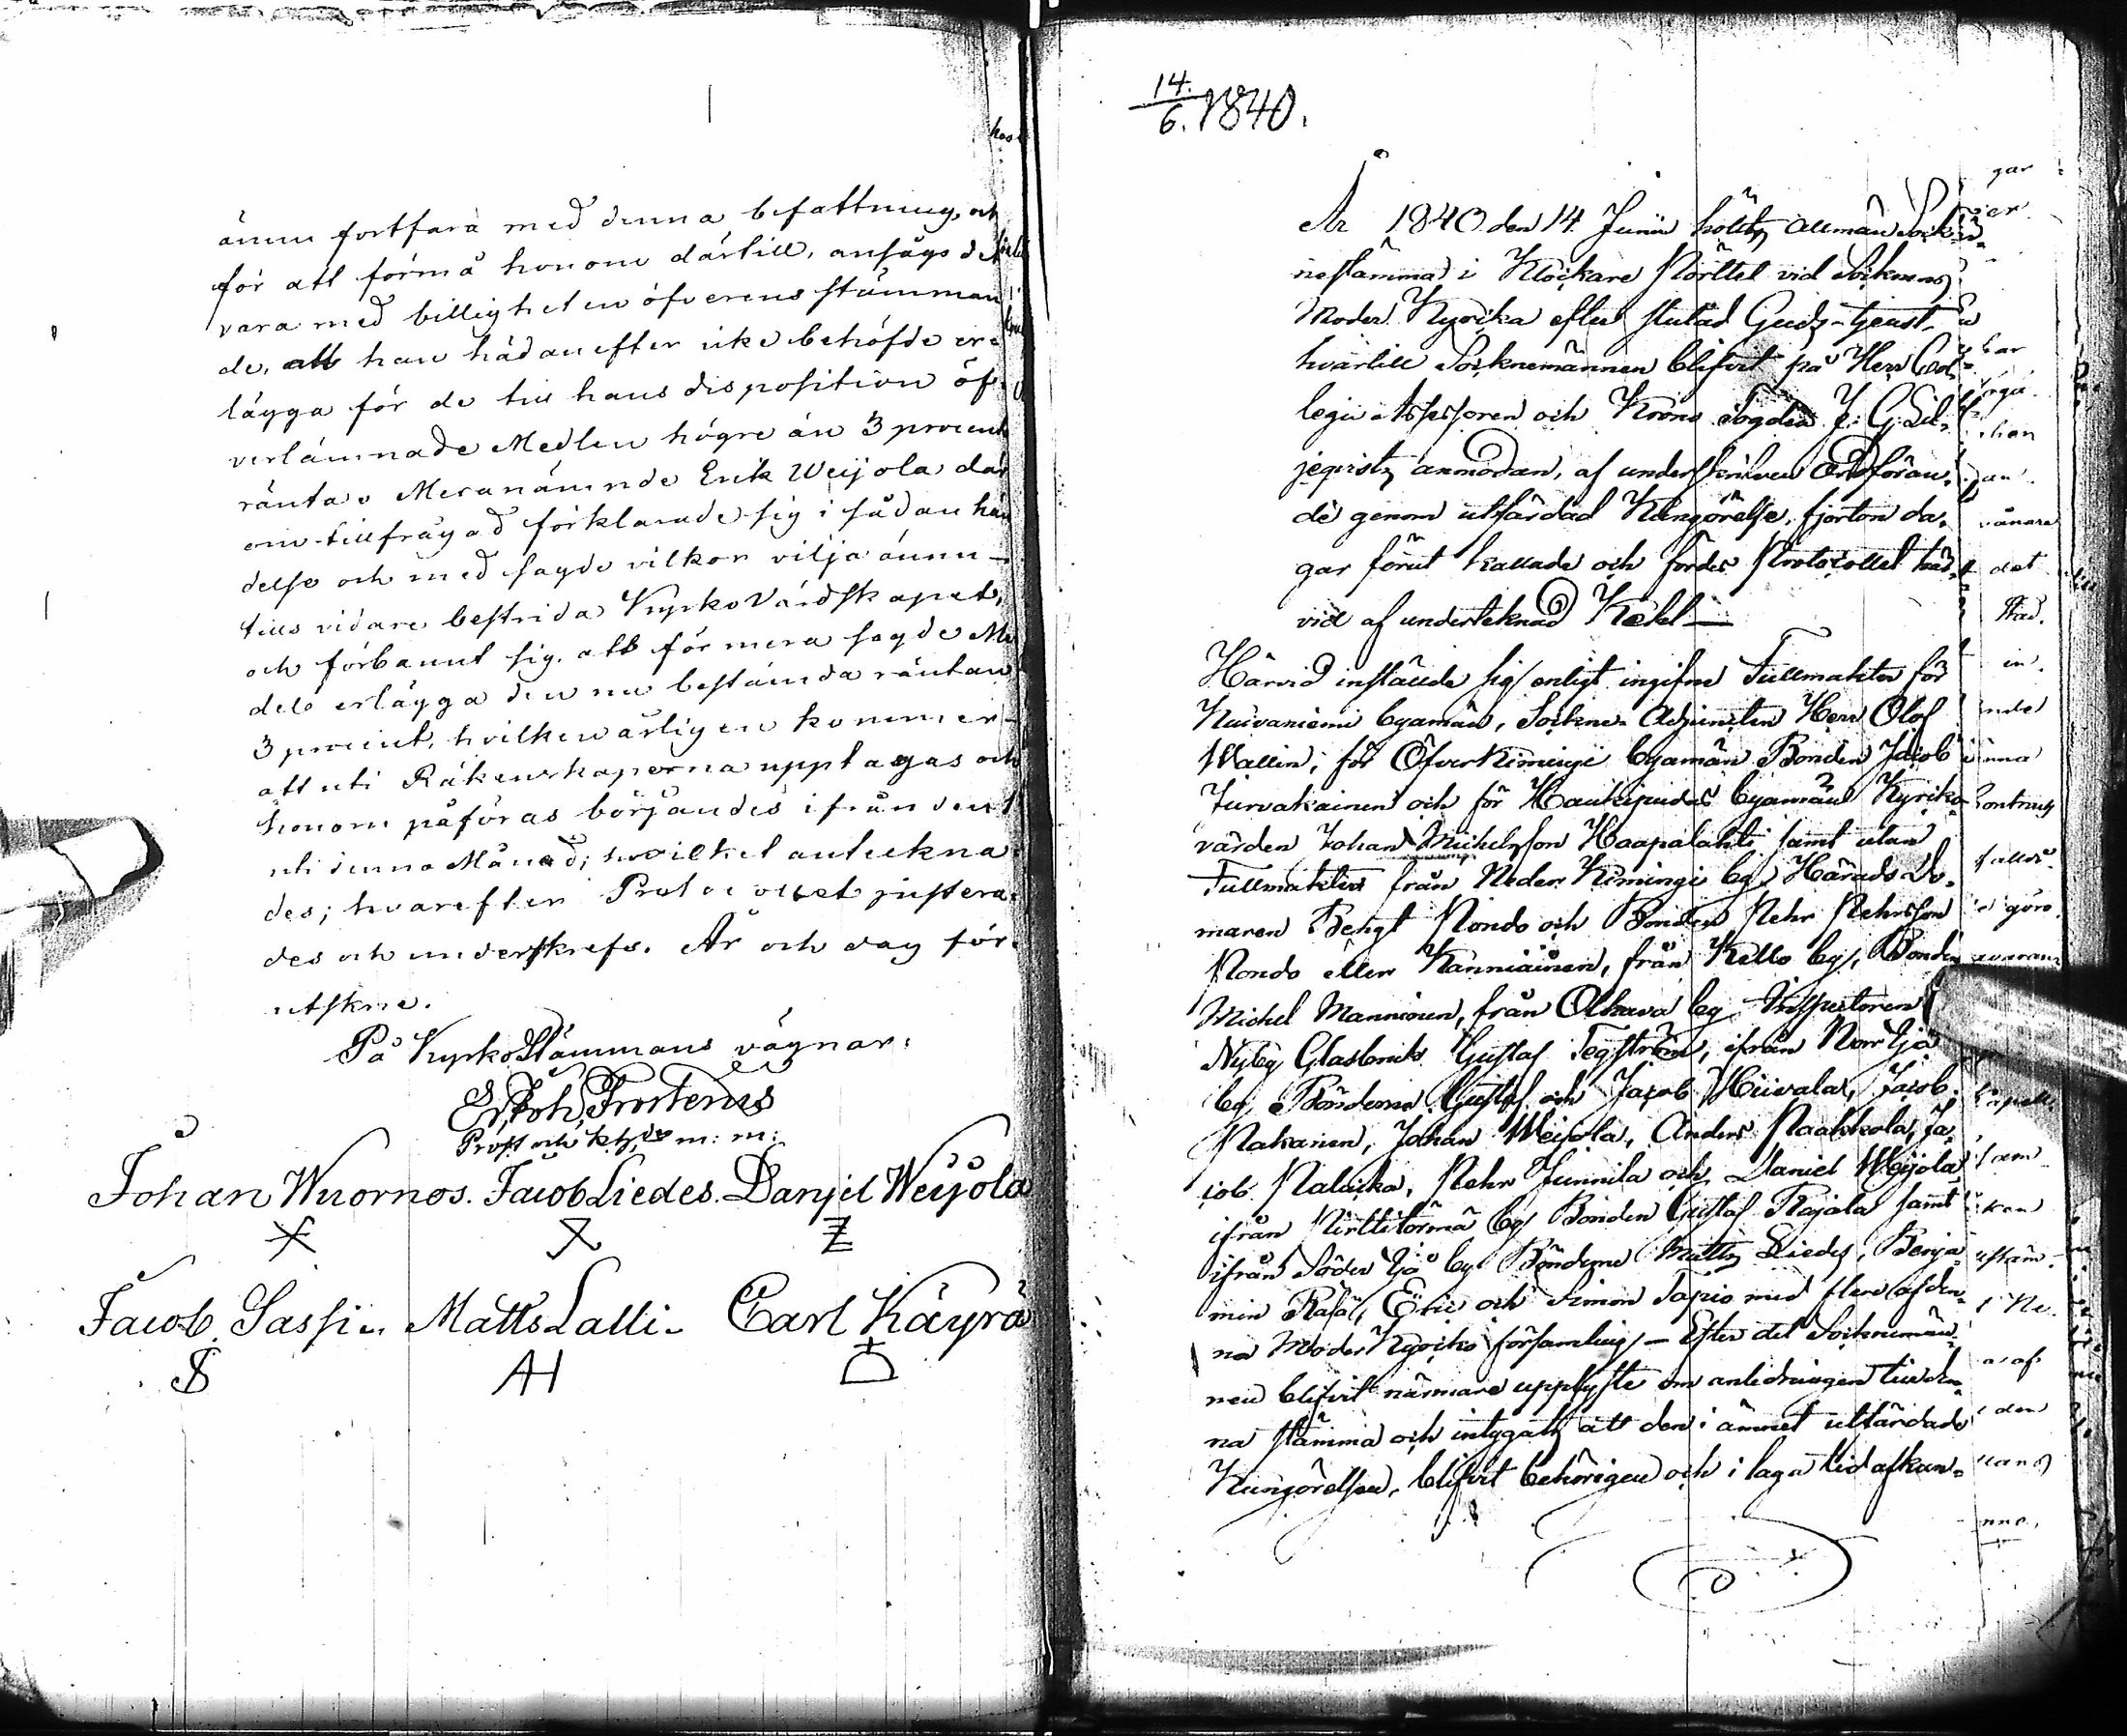 ännu fortfara med denna befattning, och
för att förmå honom därtill, ansågs det
vara med billigheten öfverensstämman
de, att han hädanefter icke behöfde er-
lägga för de till hans disposition öf-
verlämnade Medlen högre än 3 procent
ränta. Meranämnde Erik Weijola där
om tillfrågad förklarade sig i sådan hän
delse och med sagde vilkor vilja ännu
tills vidare bestrida KyrkoVärdskapet,
och förbannt sig att för mera sagde Me
del erlägga den nu bestämda räntan
3 procent, hvilken årligen kommer
att uti Räkenskaperna upptagas och
honom påföras börjandes ifrån den 1
uti denna Månad; hvilket antekna-
des; hvarefter Protocollet justera-
des och underskrefs. År och dag för-
utskrne.
På KyrkoStämmans vägnar:
Er. Joh. Frosterus
Prost och Khde m: m:
Johan Wuornos. Jacob Liedes. Danjel Weijola
Jacob Sassi. Matts Lalli. Carl Käyrä
AH
14.
6. 1840.
År 1840 den 14 Junii hölts Allmän Sock-
nestämma i Klockare Pörttet vid Soknens
Moder Kyrcka efter slutad Gudz-tjenst,
hvartill Socknemännen blifvit på Herr Col-
legii Assessoren och Krono Fogden J: G. Lil-
jeqvists anmodan, af underskrifven Ordföran-
de genom utfärdad Kungörelse, fjorton da-
gar förut kallade och fördes Protocollet här-
vid af undertecknad Kekl —
Härvid instälde sig enligt ingifne Fullmakter för
Kuivaniemi byamän, Sockne-Adjuncten Herr Olof
Wallin, för Öfverkimingi byamän Bonden Jacob
Jurvakainen och för Haukipudas byamän Kyrko-
värden Johan Michelsson Haapalahti samt utan
Fullmakter från Neder Kimingi by Härads Do-
maren Bengt Pondo och Bonden Pehr Pehrsson
Pondo eller Kanniainen, från Kello by, Bonden
Michel Manninen, från Olhava by Inspectoren
Nyby Glasbruk Gustaf Tegström, ifrån Norr Ijo
by Bönderna Gustaf och Jacob Hiivala, Jacob
Pakanen, Johan Weijola, Anders Paakkola, Ja-
cob Palaika, Pehr Junnila och Daniel Weijola,
ifrån Pirttitörmä by Bonden Gustaf Rajala samt
ifrån Söder Ijo by Bönderne Matts Liedes, Benja-
min Räsä, Eric och Simon Tapio med flere af den-
na Moder Kyrcko församling — Efter det Socknemän-
nen blifvit närmare upplyste om anledningen till den-
na stämma och intygats att den i ämnet utfärdade
Kungörelsen, blifvit behörigen och i laga tid afkun-